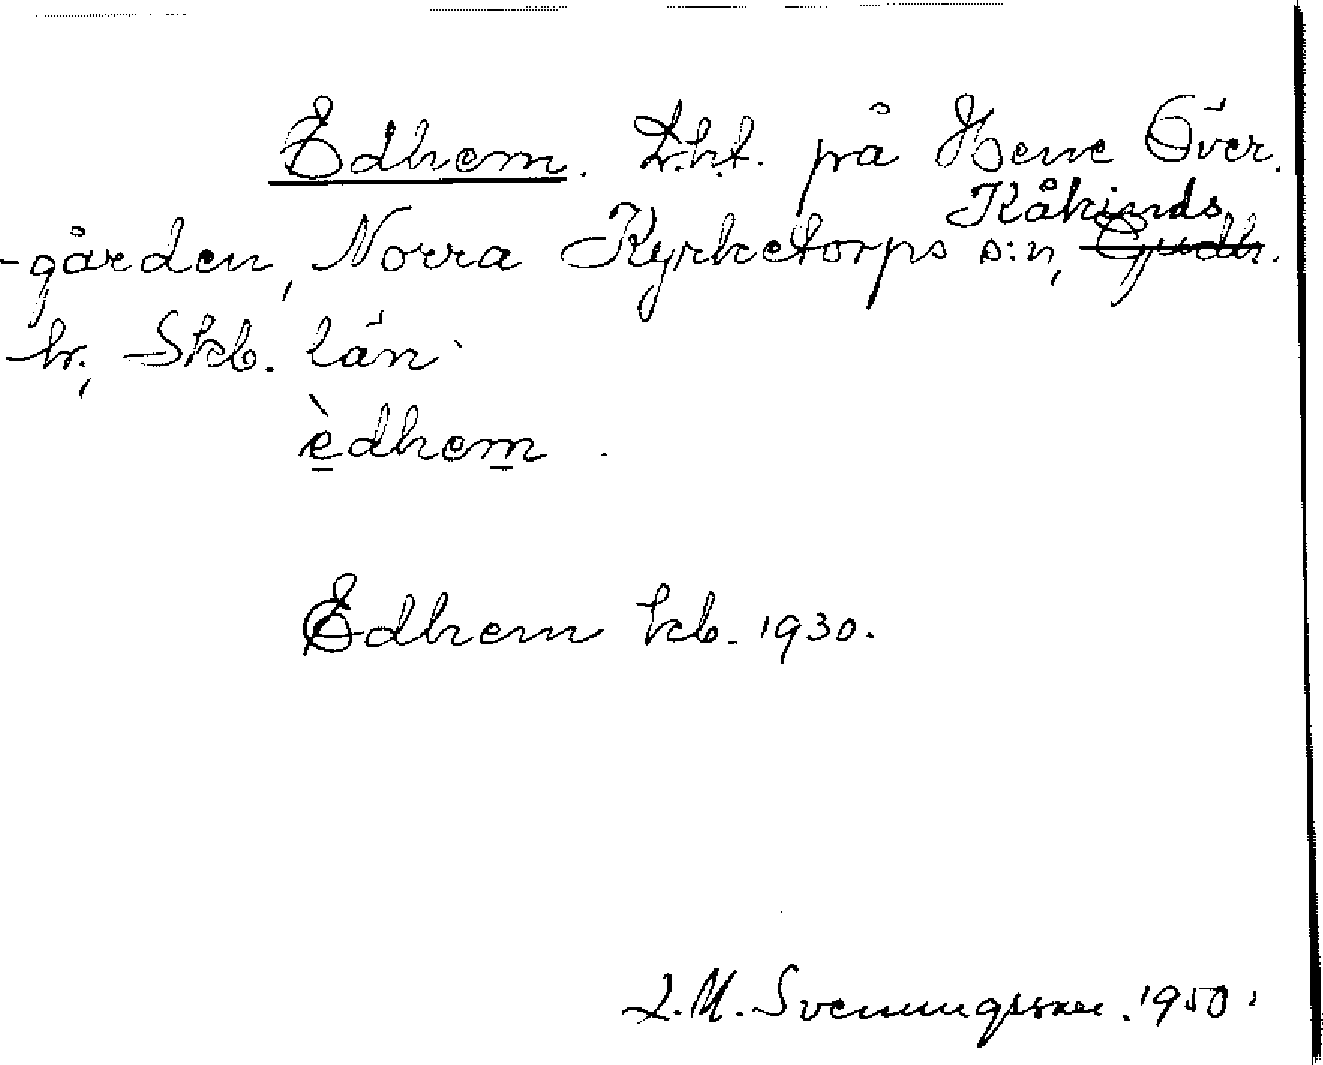 Edhem. Lht. på Hene Över-
gården, Norra Kyrketorps s:n, Kåkinds ~~Gudh.~~
hr, Skb. län
èdhem.
Edhem kb. 1930.
L.M. Svenungsson. 1950.